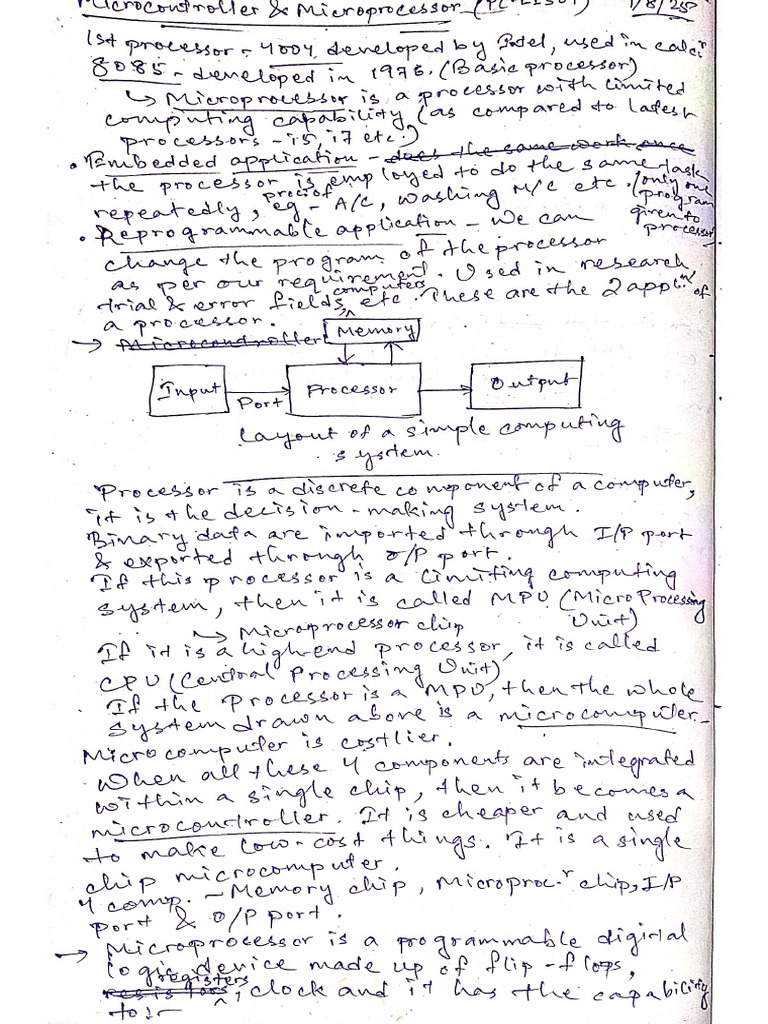 Microcontroller & Microprocessor (PC-EI501) 1/8/25
1st processor - 4004, developed by Intel, used in calcr
8085 - developed in 1976. (Basic processor)
↳ Microprocessor is a processor with limited
computing capability (as compared to latest
processors - i5, i7 etc.)
• Embedded application - does the same work once
the processor is employed to do the same task
repeatedly, eg - procr of A/C, washing M/C etc. (only one program given to processor)
• Reprogrammable application - We can
change the program of the processor
as per our requirement. Used in research
trial & error fields, computers etc. These are the 2 appln of
a processor.
→ Microcontroller
Memory
Input
Port
Processor
Output
Layout of a simple computing
system.
Processor is a discrete component of a computer,
it is the decision-making system.
Binary data are imported through I/P port
& exported through O/P port.
If this processor is a limiting computing
system, then it is called MPU (MicroProcessing Unit)
↳ Microprocessor chip
If it is a high-end processor, it is called
CPU (Central Processing Unit)
If the Processor is a MPU, then the whole
system drawn above is a microcomputer.
Microcomputer is costlier.
When all these 4 components are integrated
within a single chip, then it becomes a
microcontroller. It is cheaper and used
to make low-cost things. It is a single
chip microcomputer.
4 comp. - Memory chip, Microproc.r chip, I/P
port & O/P port.
→ Microprocessor is a programmable digital
logic device made up of flip-flops,
resistors registers, clock and it has the capability
to :-